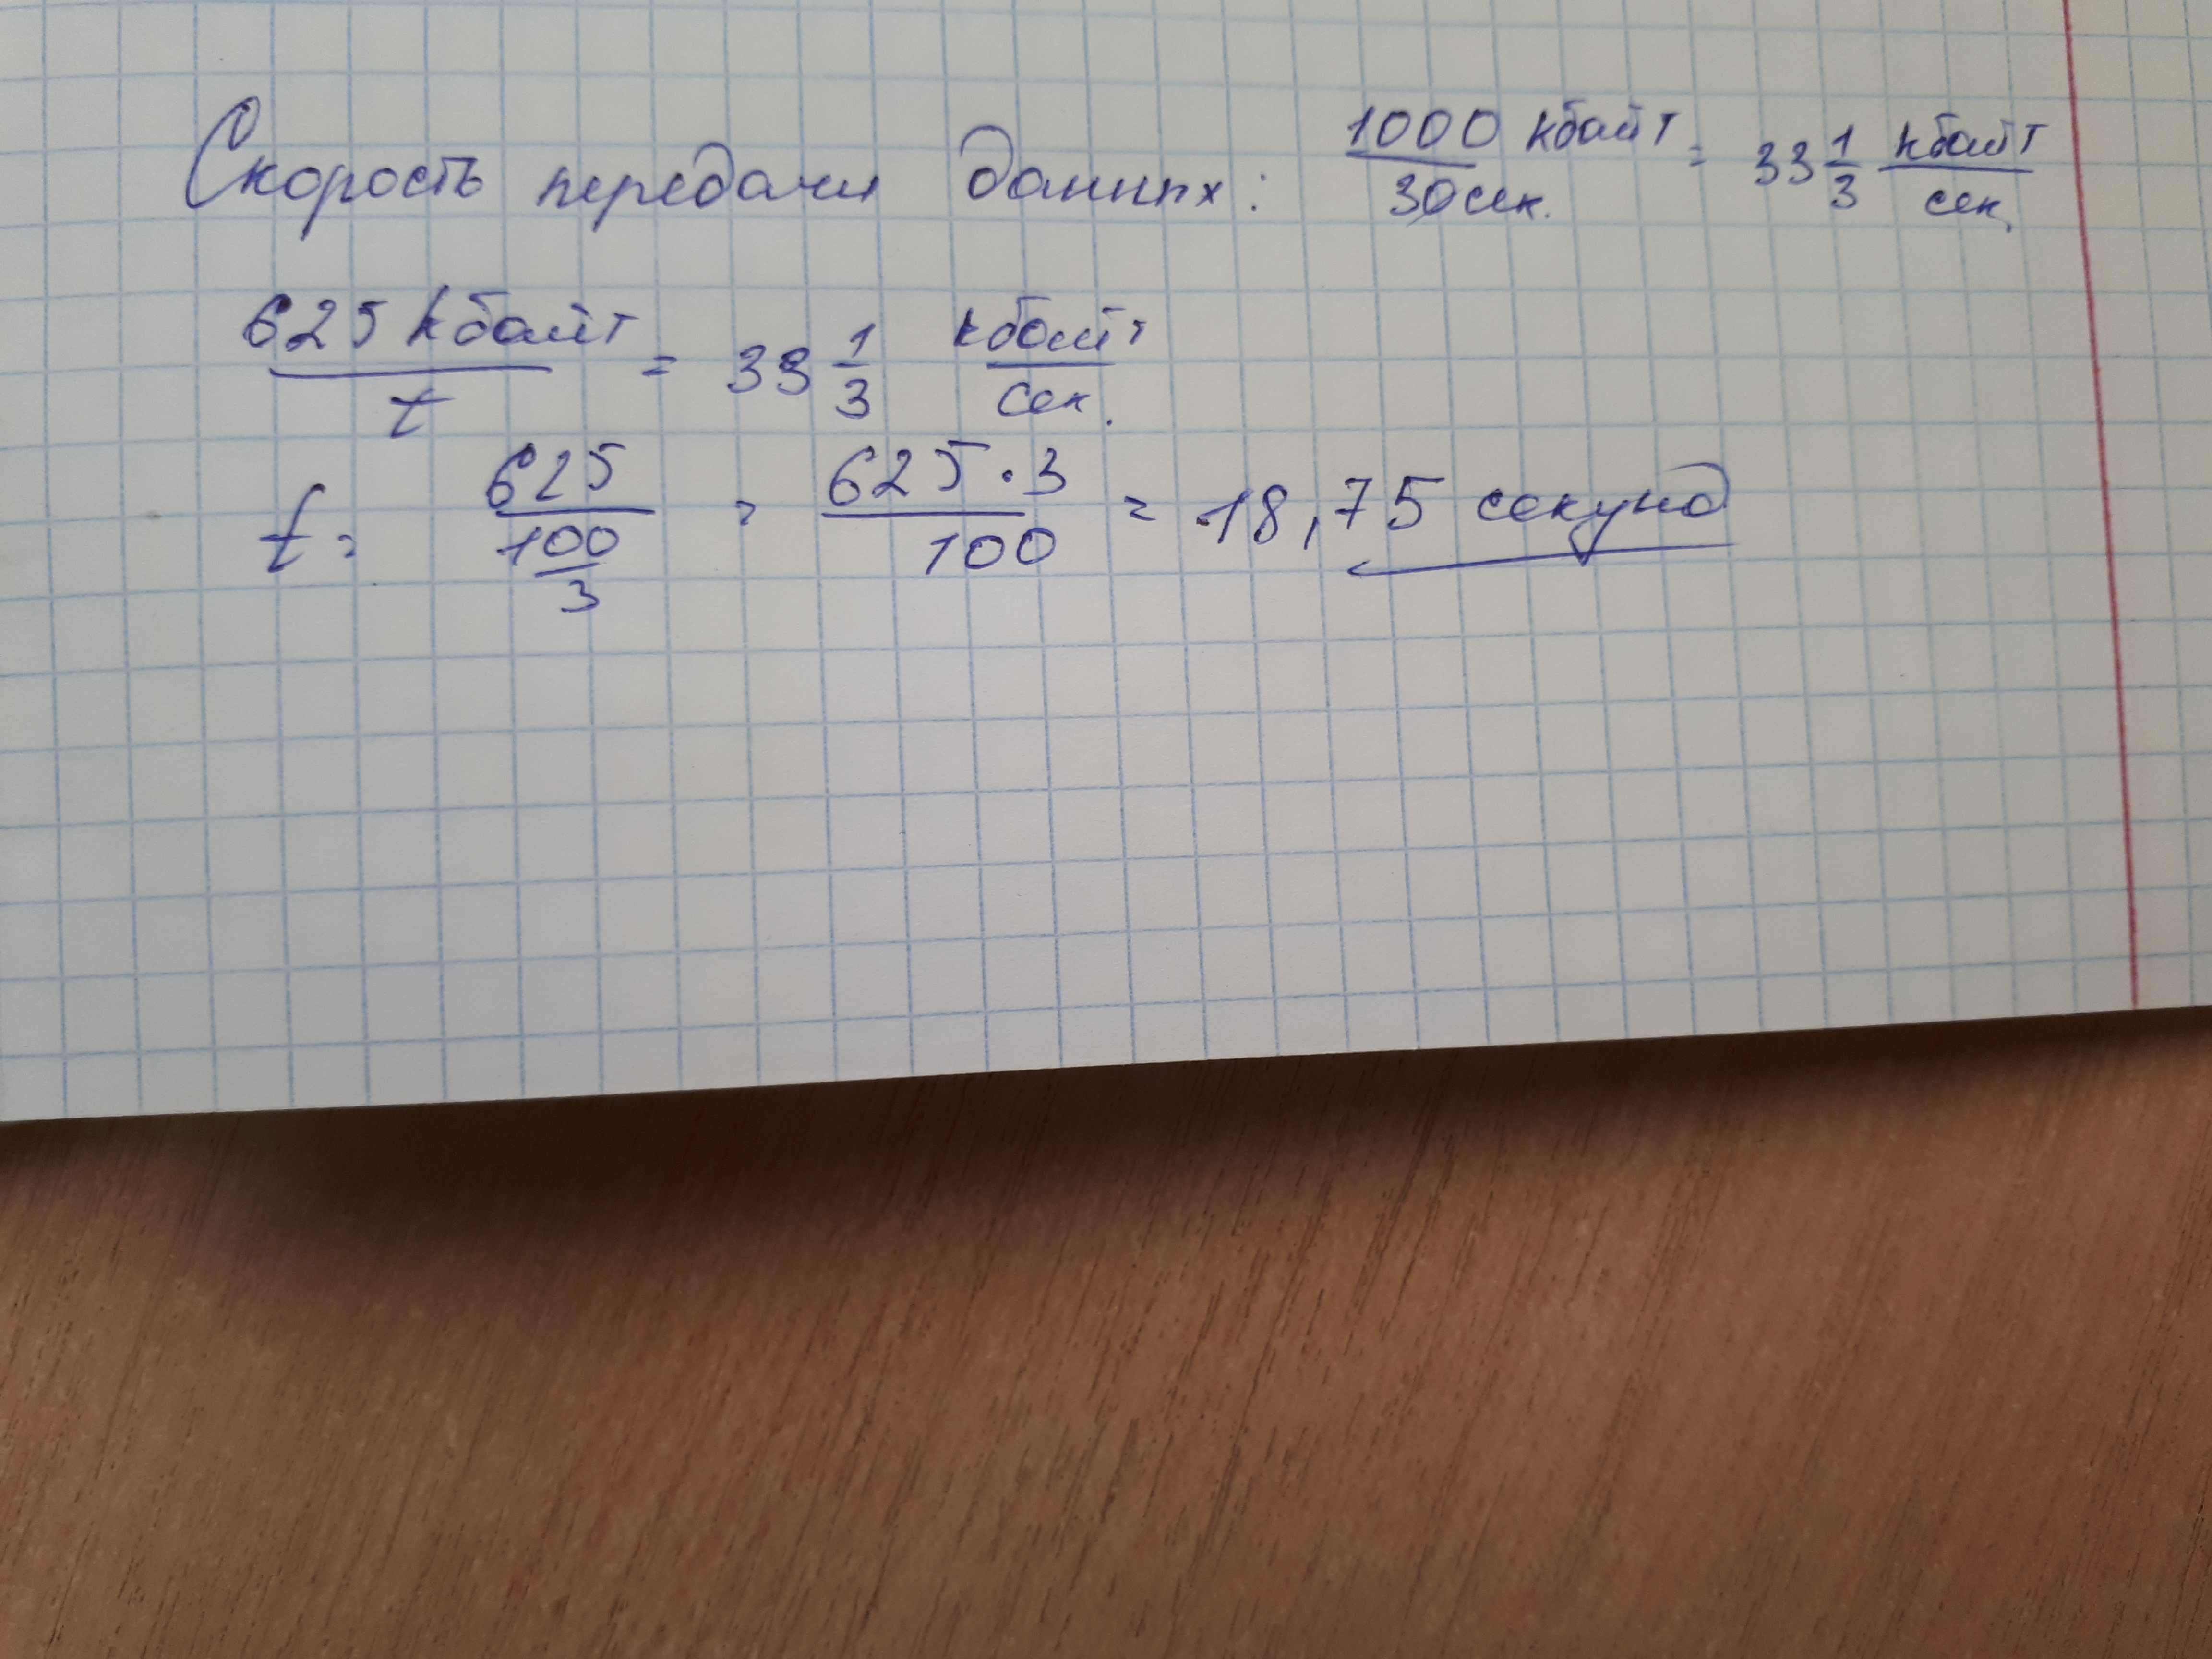 Скорость передачи данных: 1000 кбайт / 30 сек. = 33 1/3 кбайт / сек.
625 кбайт / t = 33 1/3 кбайт / сек.
t = 625 / (100/3) = 625 · 3 / 100 = 18,75 секунд